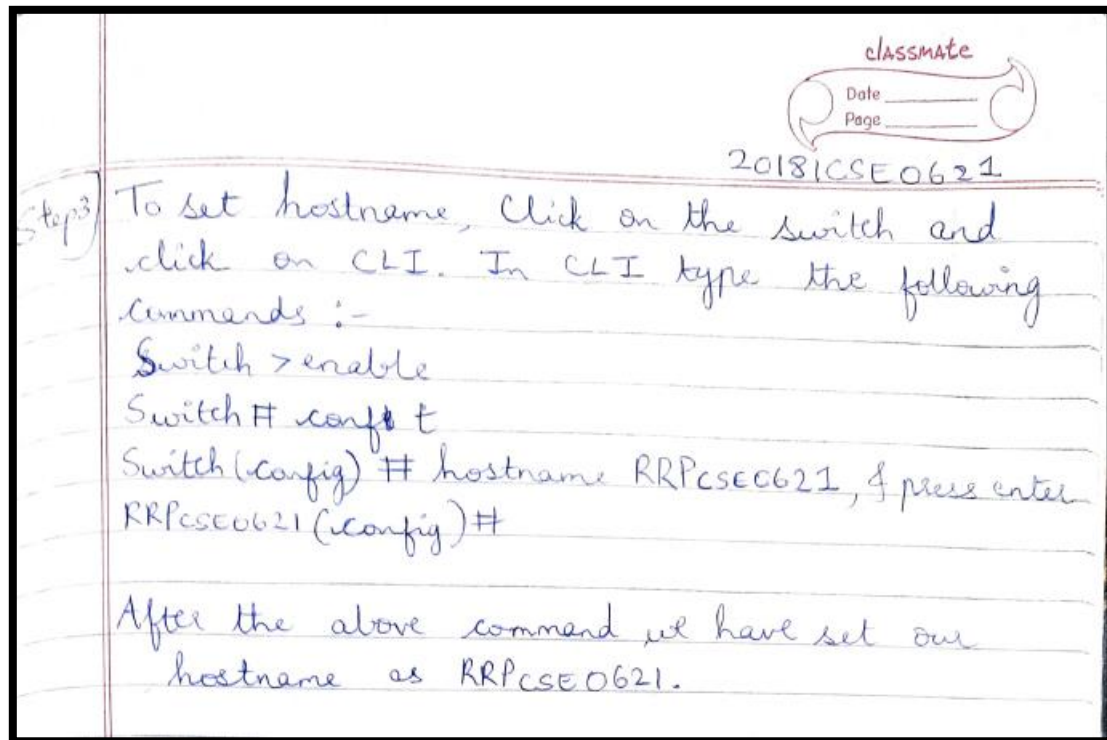 classmate
Date
Page
20181CSE0621
Step3)
To set hostname, Click on the switch and
click on CLI. In CLI type the following
commands :-
Switch >enable
Switch# conf t
Switch(config) # hostname RRPCSE0621, & press enter
RRPCSE0621(config)#
After the above command, we have set our
hostname as RRPCSE0621.